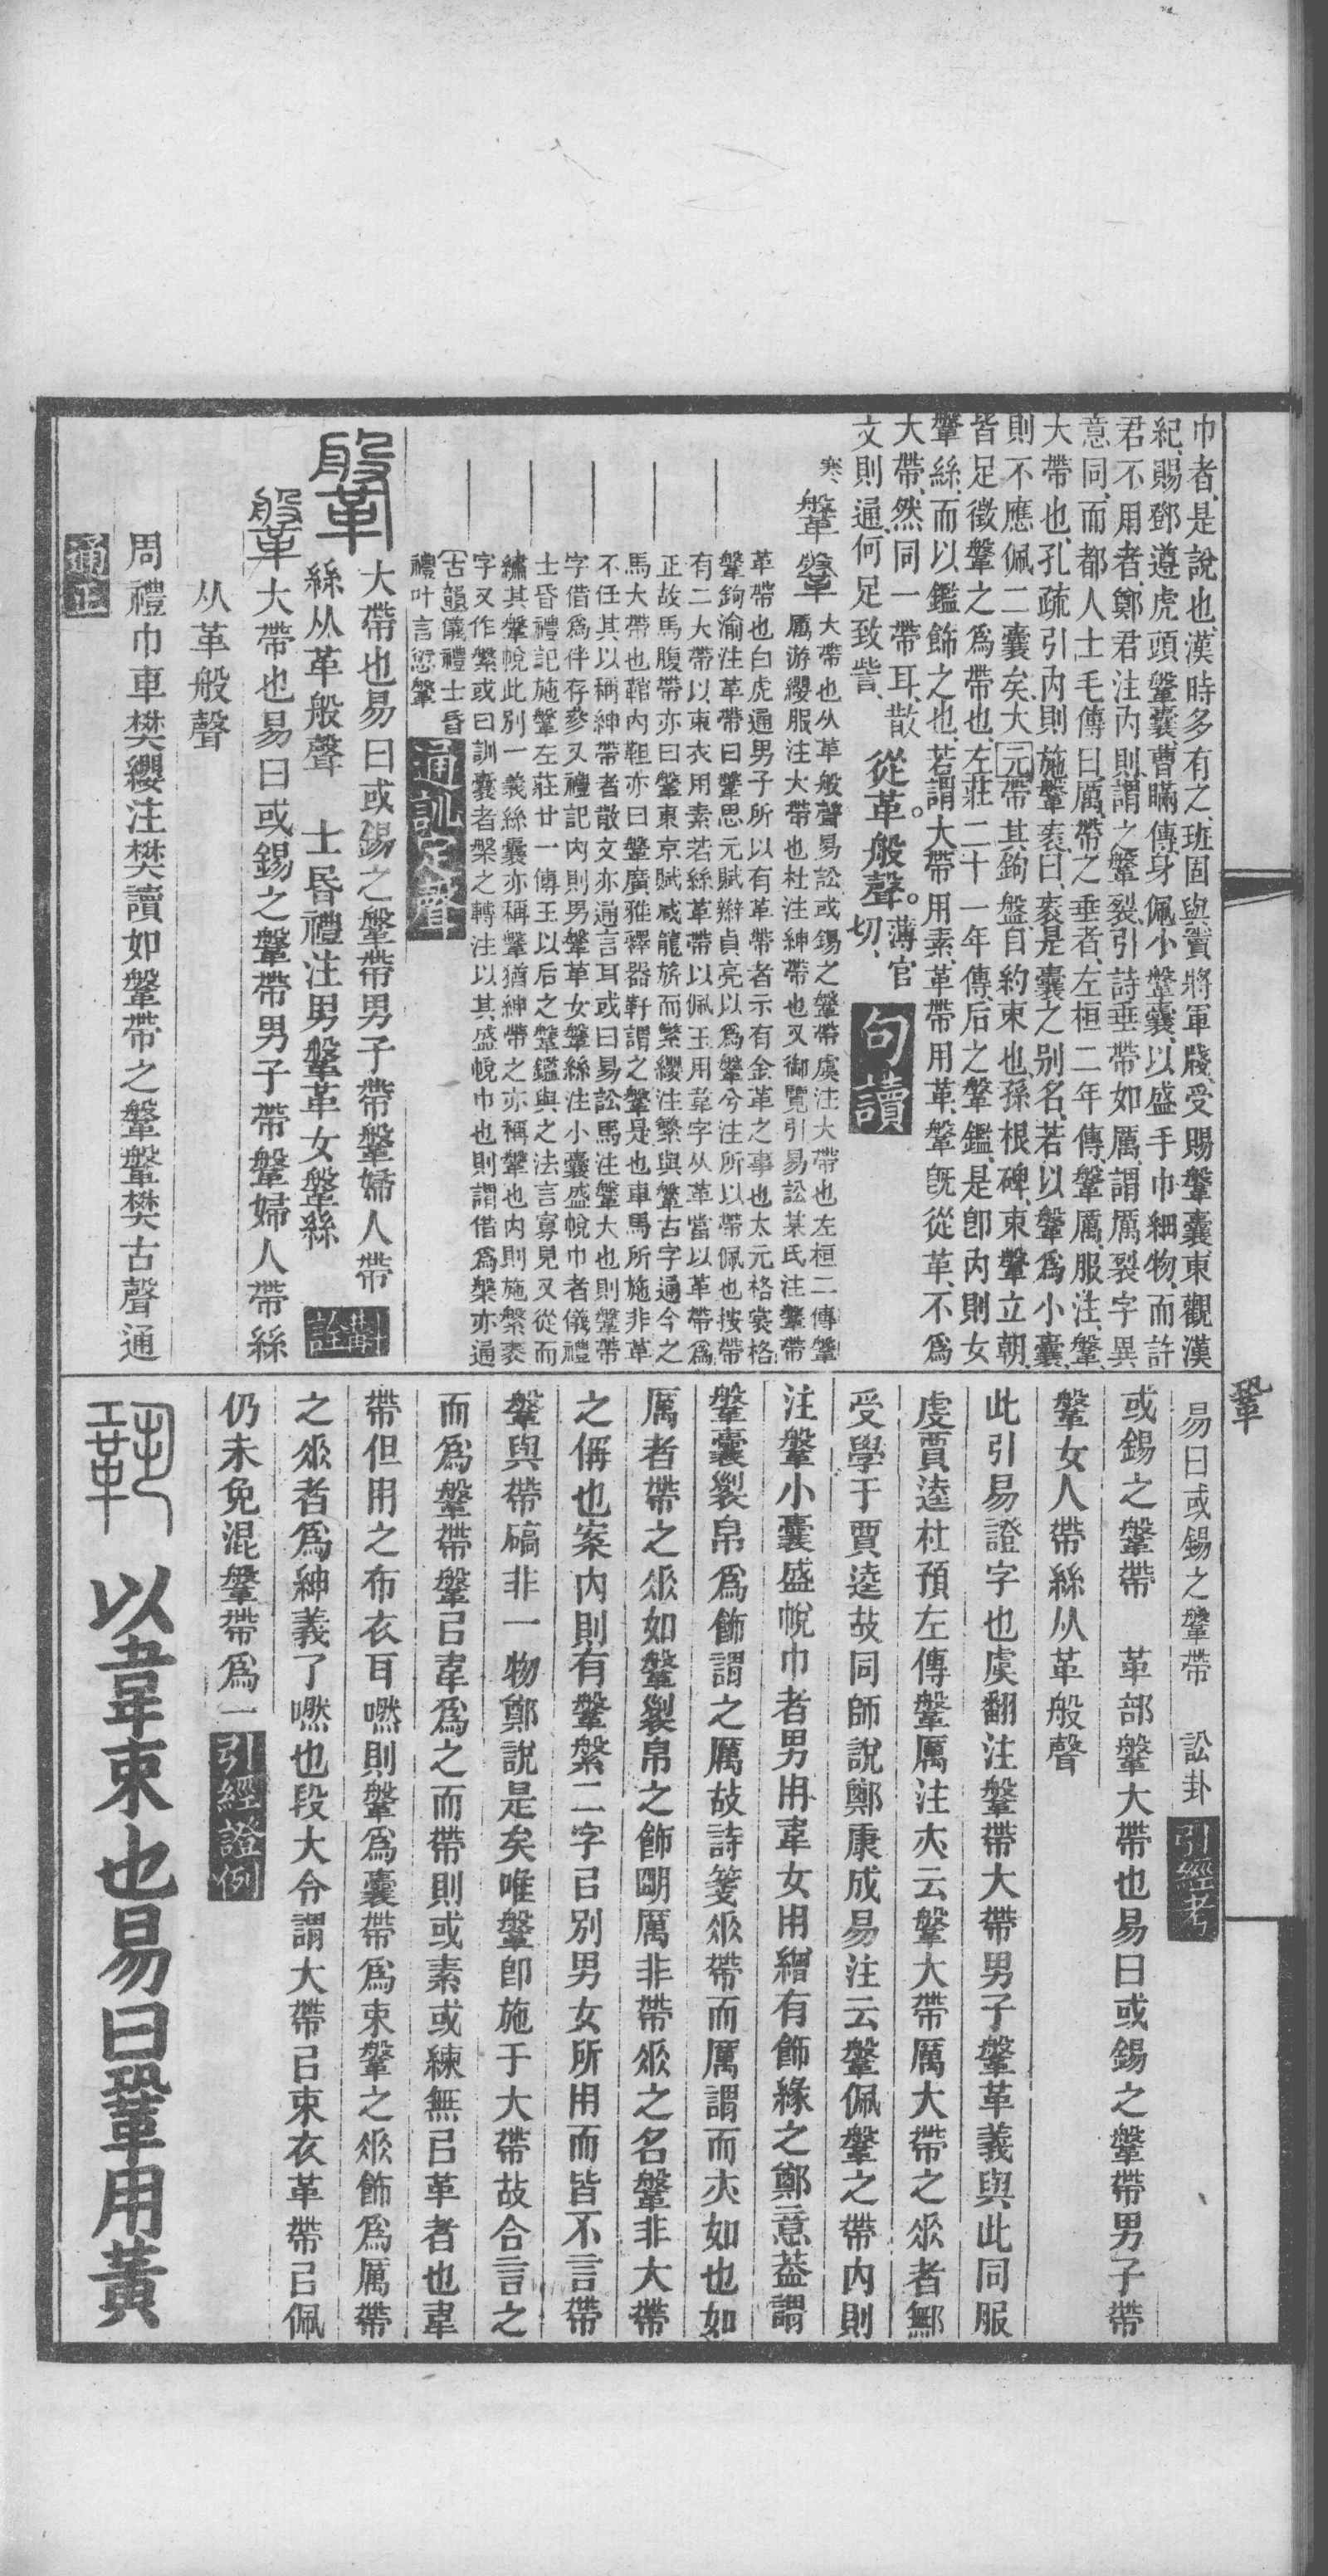 巾者、是說也、漢時多有之、班固與竇將軍牋、受賜鞶囊、東觀漢
紀、賜鄧遵虎頭鞶囊、曹瞞傳、身佩小鞶囊、以盛手巾細物、而許
君不用者、鄭君注內則、謂之鞶裂、引詩垂帶如厲、謂厲裂字異
意同、而都人士毛傳曰、厲、帶之垂者、左桓二年傳、鞶厲、服注、鞶、
大帶也、孔疏引內則施鞶袠曰、袠是囊之別名、若以鞶爲小囊、
則不應佩二囊矣、大元帶其鉤盤、自約束也、孫根碑、束鞶立朝、
皆足徵鞶之爲帶也、左莊二十一年傳、后之鞶鑑、是卽內則女
鞶絲、而以鑑飾之也、若謂大帶用素、革帶用革、鞶旣從革、不爲
大帶、然同一帶耳、散
文則通、何足致訾、
從革。般聲。薄官切、
句讀
寒 鞶 鞶
大帶也从革般聲易訟或錫之鞶帶虞注大帶也左桓二傳鞶
厲游纓服注大帶也杜注紳帶也又御覽引易訟某氏注鞶帶
革帶也白虎通男子所以有革帶者示有金革之事也太元格裳格
鞶鉤渝注革帶曰鞶思元賦辮貞亮以爲鞶兮注所以帶佩也按帶
有二大帶以束衣用素若絲革帶以佩玉用韋字从革當以革帶爲
正故馬腹帶亦曰鞶東京賦咸龍旂而繁纓注繁與鞶古字通今之
馬大帶也鞙內靼亦曰鞶廣雅釋器靬謂之鞶是也車馬所施非革
不任其以稱紳帶者散文亦通言耳或曰易訟馬注鞶大也則鞶帶
字借爲伴存參又禮記內則男鞶革女鞶絲注小囊盛帨巾者儀禮
士昏禮記施鞶左莊廿一傳王以后之鞶鑑與之法言寡見又從而
繡其鞶帨此別一義絲囊亦稱鞶猶紳帶之亦稱鞶也內則施縏袠
字又作縏或曰訓囊者槃之轉注以其盛帨巾也則謂借爲槃亦通
古韻儀禮士昏
禮叶言愆鞶
通訓定聲
鞶 大帶也易曰或錫之鞶帶男子帶鞶婦人帶
絲从革般聲 士昏禮注男鞶革女鞶絲
鞶大帶也易曰或錫之鞶帶男子帶鞶婦人帶絲
从革般聲
周禮巾車樊纓注樊讀如鞶帶之鞶鞶樊古聲通
通正
易曰或錫之鞶帶 訟卦 引經考
或錫之鞶帶 革部鞶大帶也易曰或錫之鞶帶男子帶
鞶女人帶絲从革般聲
此引易證字也虞翻注鞶帶大帶男子鞶革義與此同服
虔賈逵杜預左傳鞶厲注夶云鞶大帶厲大帶之𠂹者鄦
受學于賈逵故同師說鄭康成易注云鞶佩鞶之帶內則
注鞶小囊盛帨巾者男用韋女用繒有飾緣之鄭意葢謂
鞶囊製帛爲飾謂之厲故詩箋𠂹帶而厲謂而夶如也如
厲者帶之𠂹如鞶製帛之飾朙厲非帶𠂹之名鞶非大帶
之偁也案內則有鞶縏二字㠯別男女所用而皆不言帶
鞶與帶碻非一物鄭說是矣唯鞶卽施于大帶故合言之
而爲鞶帶鞶㠯韋爲之而帶則或素或練無㠯革者也韋
帶但用之布衣耳嘫則鞶爲囊帶爲束鞶之𠂹飾爲厲帶
之𠂹者爲紳義了嘫也段大令謂大帶㠯束衣革帶㠯佩
仍未免混鞶帶爲一 引經證例
鞏 以韋束也易曰鞏用黃
鞏